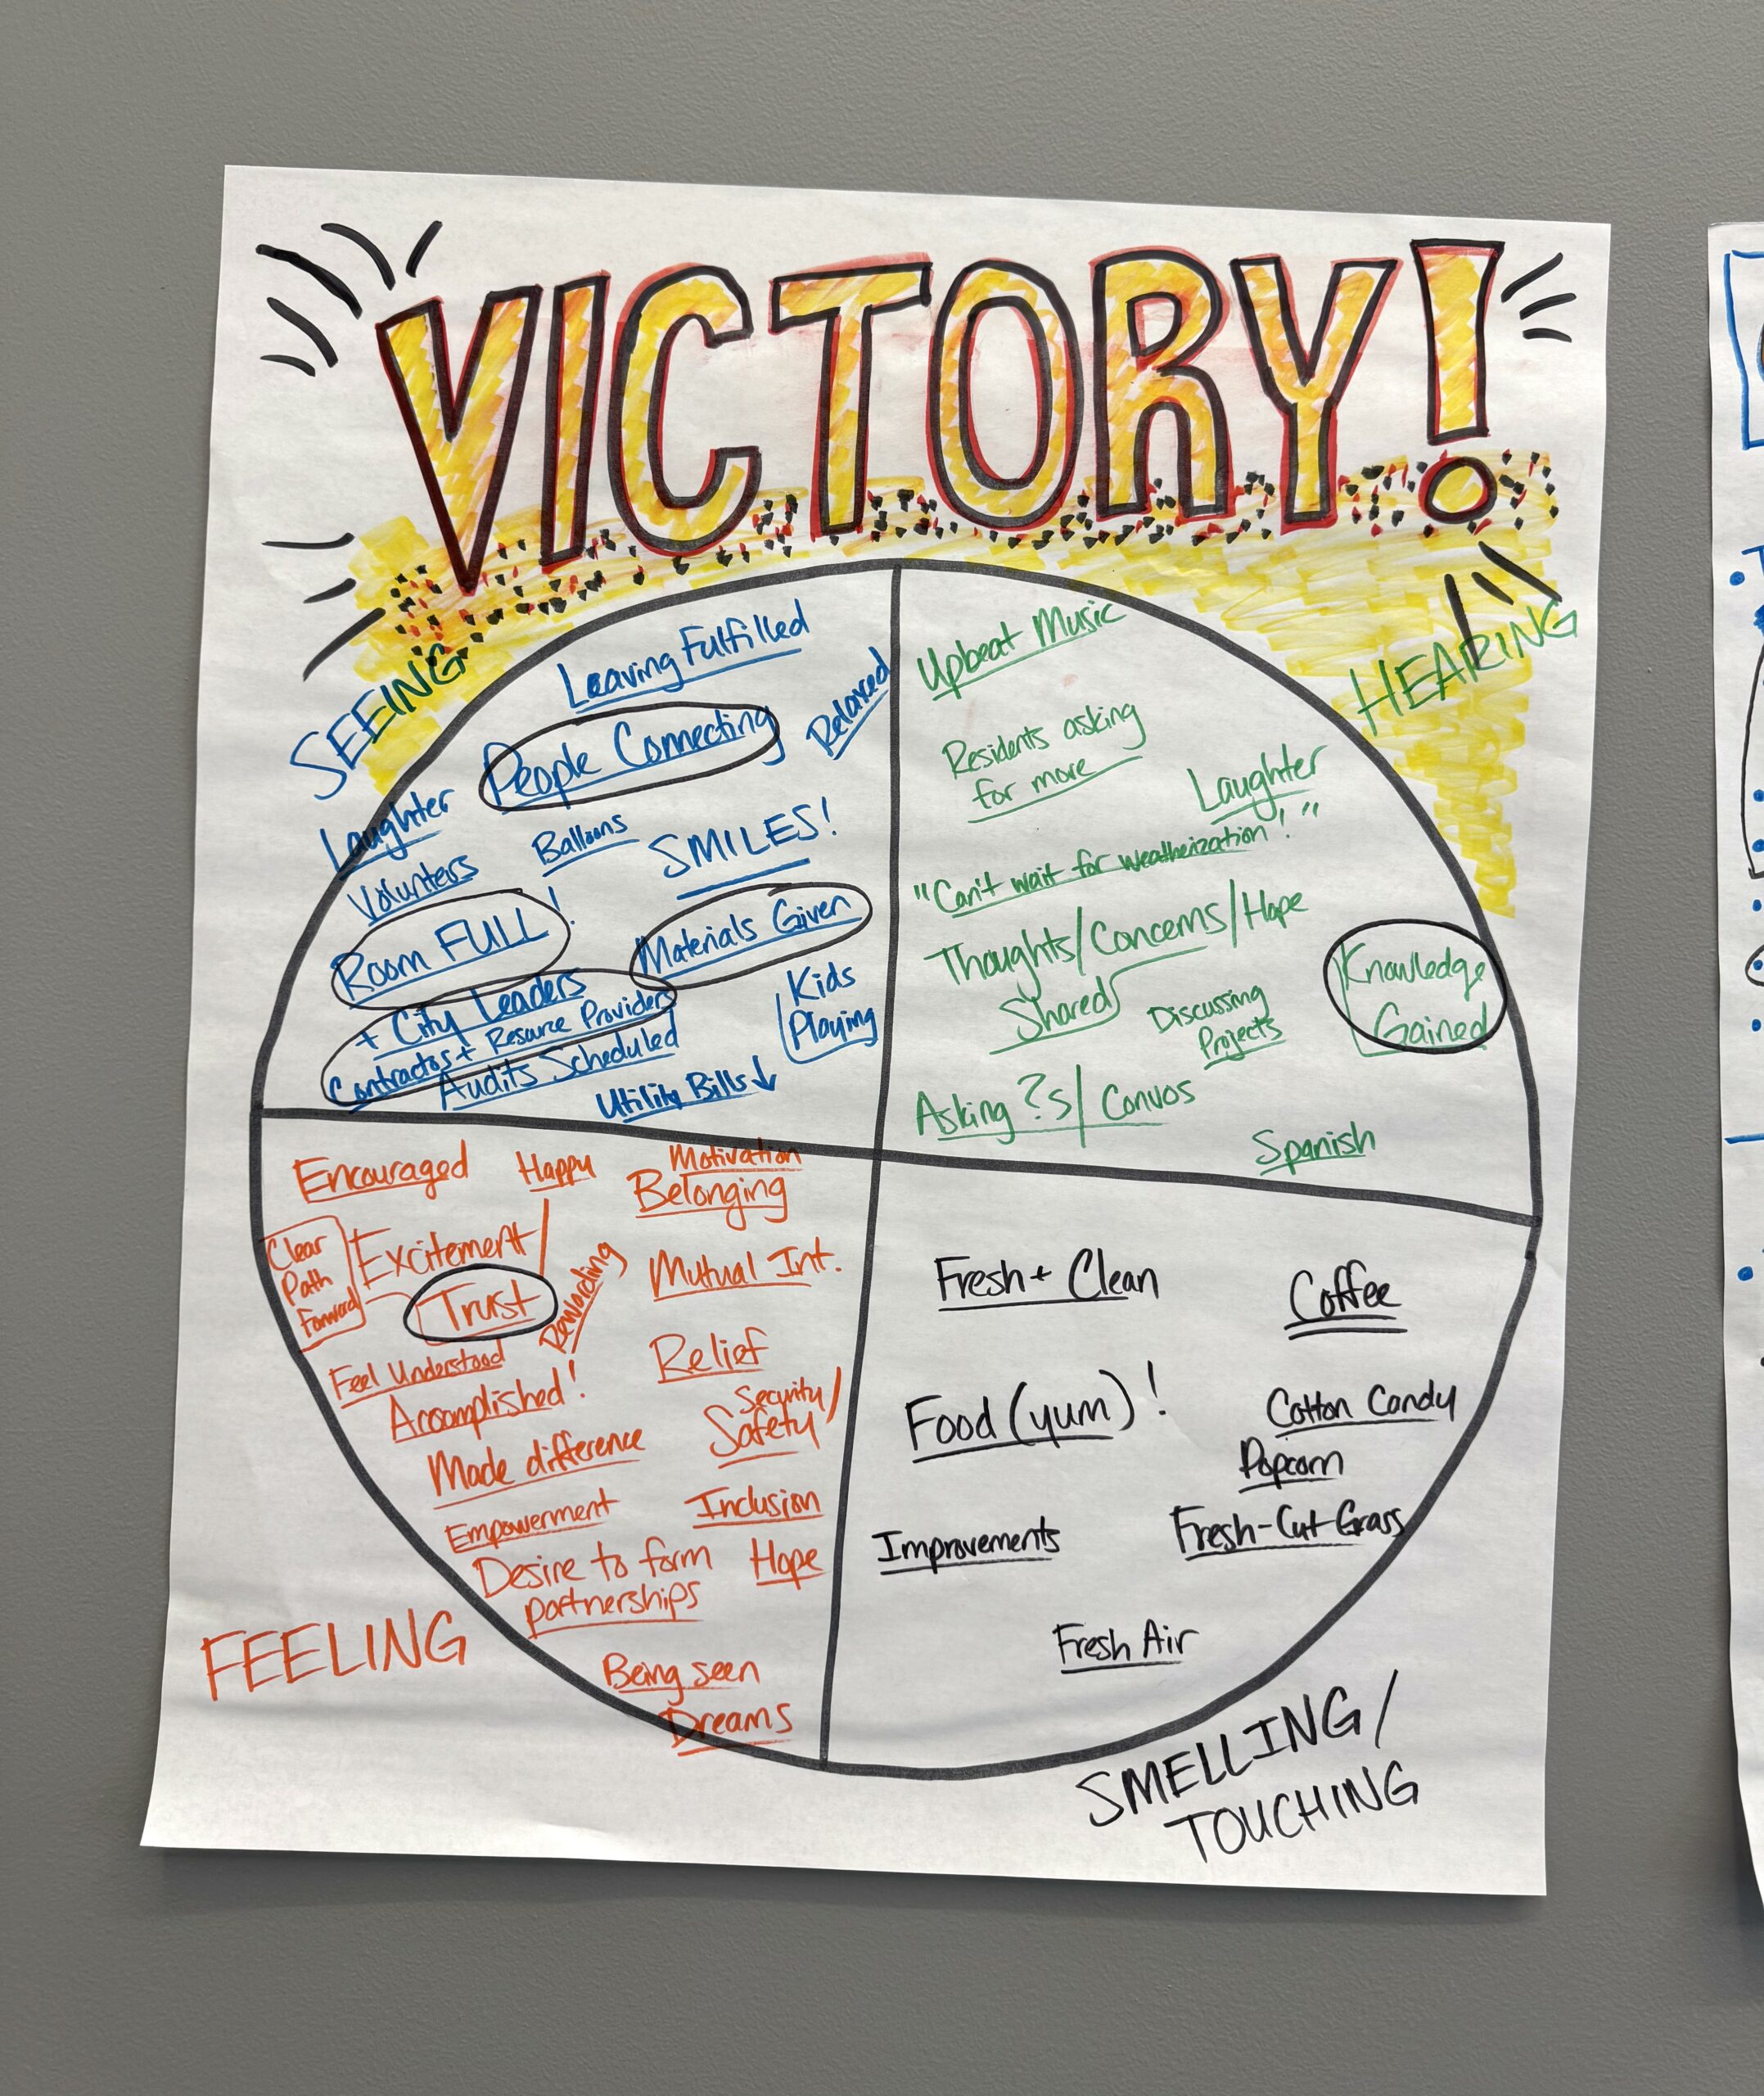 VICTORY!
SEEING
Leaving Fulfilled
People Connecting
Relaxed
Laughter
Balloons
SMILES!
Volunters
Room FULL!
Materials Given
+ City Leaders
Contractos + Resource Providers
Audits Scheduled
Kids
Playing
Utility Bills ↓
HEARING
Upbeat Music
Residents asking
for more
Laughter
"Can't wait for weatherization!"
Thoughts/Concerns/Hope
Shared
Discussing
Projects
Knowledge
Gained
Asking ?s/Convos
Spanish
FEELING
Encouraged
Happy
Motivation
Belonging
Clear
Path
Forward
Excitement/
Trust
Rewarding
Mutual Int.
Feel Understood
Relief
Accomplished!
Security/
Safety
Made difference
Empowerment
Inclusion
Desire to form
partnerships
Hope
Being seen
Dreams
Fresh + Clean
Coffee
Food (yum)!
Cotton Candy
Popcorn
Improvements
Fresh-Cut-Grass
Fresh Air
SMELLING/
TOUCHING